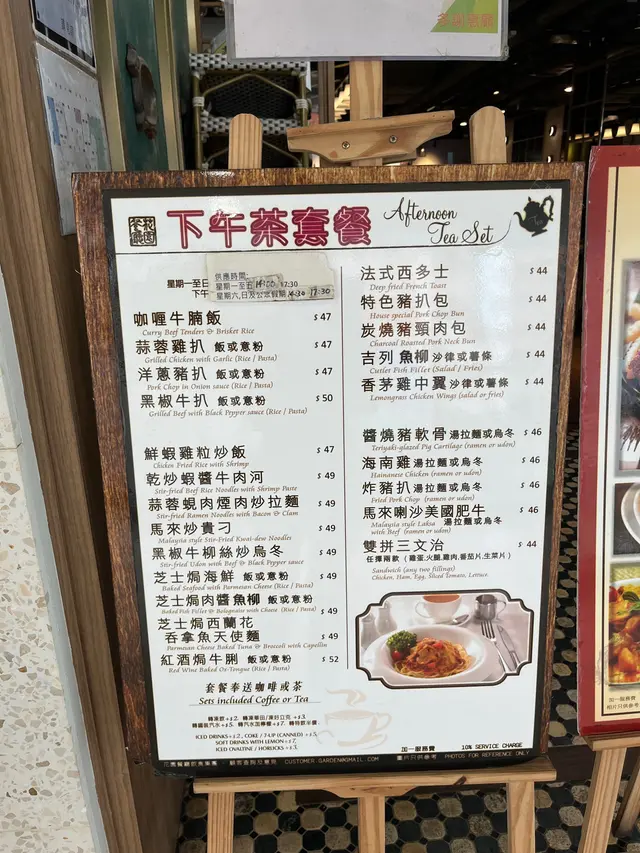 下午茶套餐
Afternoon
Tea Set
供應時間:
星期一至日
星期一至五 17:30
下午
星期六,日及公眾假期 17:30
咖喱牛腩飯 $ 47
Curry Beef Tenders & Brisket Rice
蒜蓉雞扒 飯或意粉 $ 47
Grilled Chicken with Garlic (Rice / Pasta)
洋蔥豬扒 飯或意粉 $ 47
Pork Chop in Onion sauce (Rice / Pasta)
黑椒牛扒 飯或意粉 $ 50
Grilled Beef with Black Pepper sauce (Rice / Pasta)
鮮蝦雞粒炒飯 $ 47
Chicken Fried Rice with Shrimp
乾炒蝦醬牛肉河 $ 49
Stir-fried Beef Rice Noodles with Shrimp Paste
蒜蓉蜆肉煙肉炒拉麵 $ 49
Stir-fried Ramen Noodles with Bacon & Clam
馬來炒貴刁 $ 49
Malaysia style Stir-Fried Kwai-dew Noodles
黑椒牛柳絲炒烏冬 $ 49
Stir-fried Udon with Beef & Black Pepper sauce
芝士焗海鮮 飯或意粉 $ 49
Baked Seafood with Parmesan Cheese (Rice / Pasta)
芝士焗肉醬魚柳 飯或意粉 $ 49
Baked Fish Fillet & Bolognaise with Cheese (Rice / Pasta)
芝士焗西蘭花
吞拿魚天使麵 $ 49
Parmesan Cheese Baked Tuna & Broccoli with Capellin
紅酒焗牛脷 飯或意粉 $ 52
Red Wine Baked Ox-Tongue (Rice / Pasta)
套餐奉送咖啡或茶
Sets included Coffee or Tea
ICED DRINKS +$2, COKE / 7-UP (CANNED) +$5
SOFT DRINKS WITH LEMON +$7
ICED OVALTINE / HORLICKS +$3
法式西多士 $ 44
Deep fried French Toast
特色豬扒包 $ 44
House special Pork Chop Bun
炭燒豬頸肉包 $ 44
Charcoal Roasted Pork Neck Bun
吉列魚柳 沙律或薯條 $ 44
Cutlet Fish Fillet (Salad / Fries)
香茅雞中翼 沙律或薯條 $ 44
Lemongrass Chicken Wings (salad or fries)
醬燒豬軟骨 湯拉麵或烏冬 $ 46
Teriyaki-glazed Pig Cartilage (ramen or udon)
海南雞 湯拉麵或烏冬 $ 46
Hainanese Chicken (ramen or udon)
炸豬扒 湯拉麵或烏冬 $ 46
Fried Pork Chop (ramen or udon)
馬來喇沙美國肥牛 $ 46
Malaysia style Laksa 湯拉麵或烏冬
with Beef (ramen or udon)
雙拼三文治 $ 44
任擇兩款 (雞蛋,火腿,雞肉,番茄片,生菜片)
Sandwich (any two fillings)
Chicken, Ham, Egg, Sliced Tomato, Lettuce
加一服務費 10% SERVICE CHARGE
圖片只供參考 PHOTOS FOR REFERENCE ONLY
加一服務費
相片只供參考